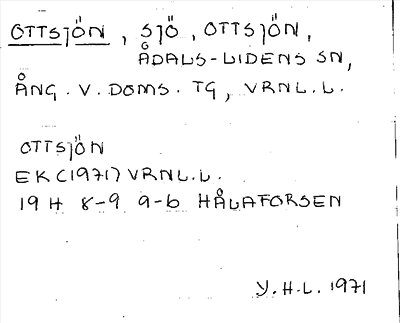 OTTSJÖN, SJÖ, OTTSJÖN,
ÅDALS-LIDENS SN,
ÅNG. V. DOMS. TG, VRNL.L.
OTTSJÖN
EK(1971) VRNL.L.
19 H 8-9 a-b HÅLAFORSEN
Y.H.L. 1971